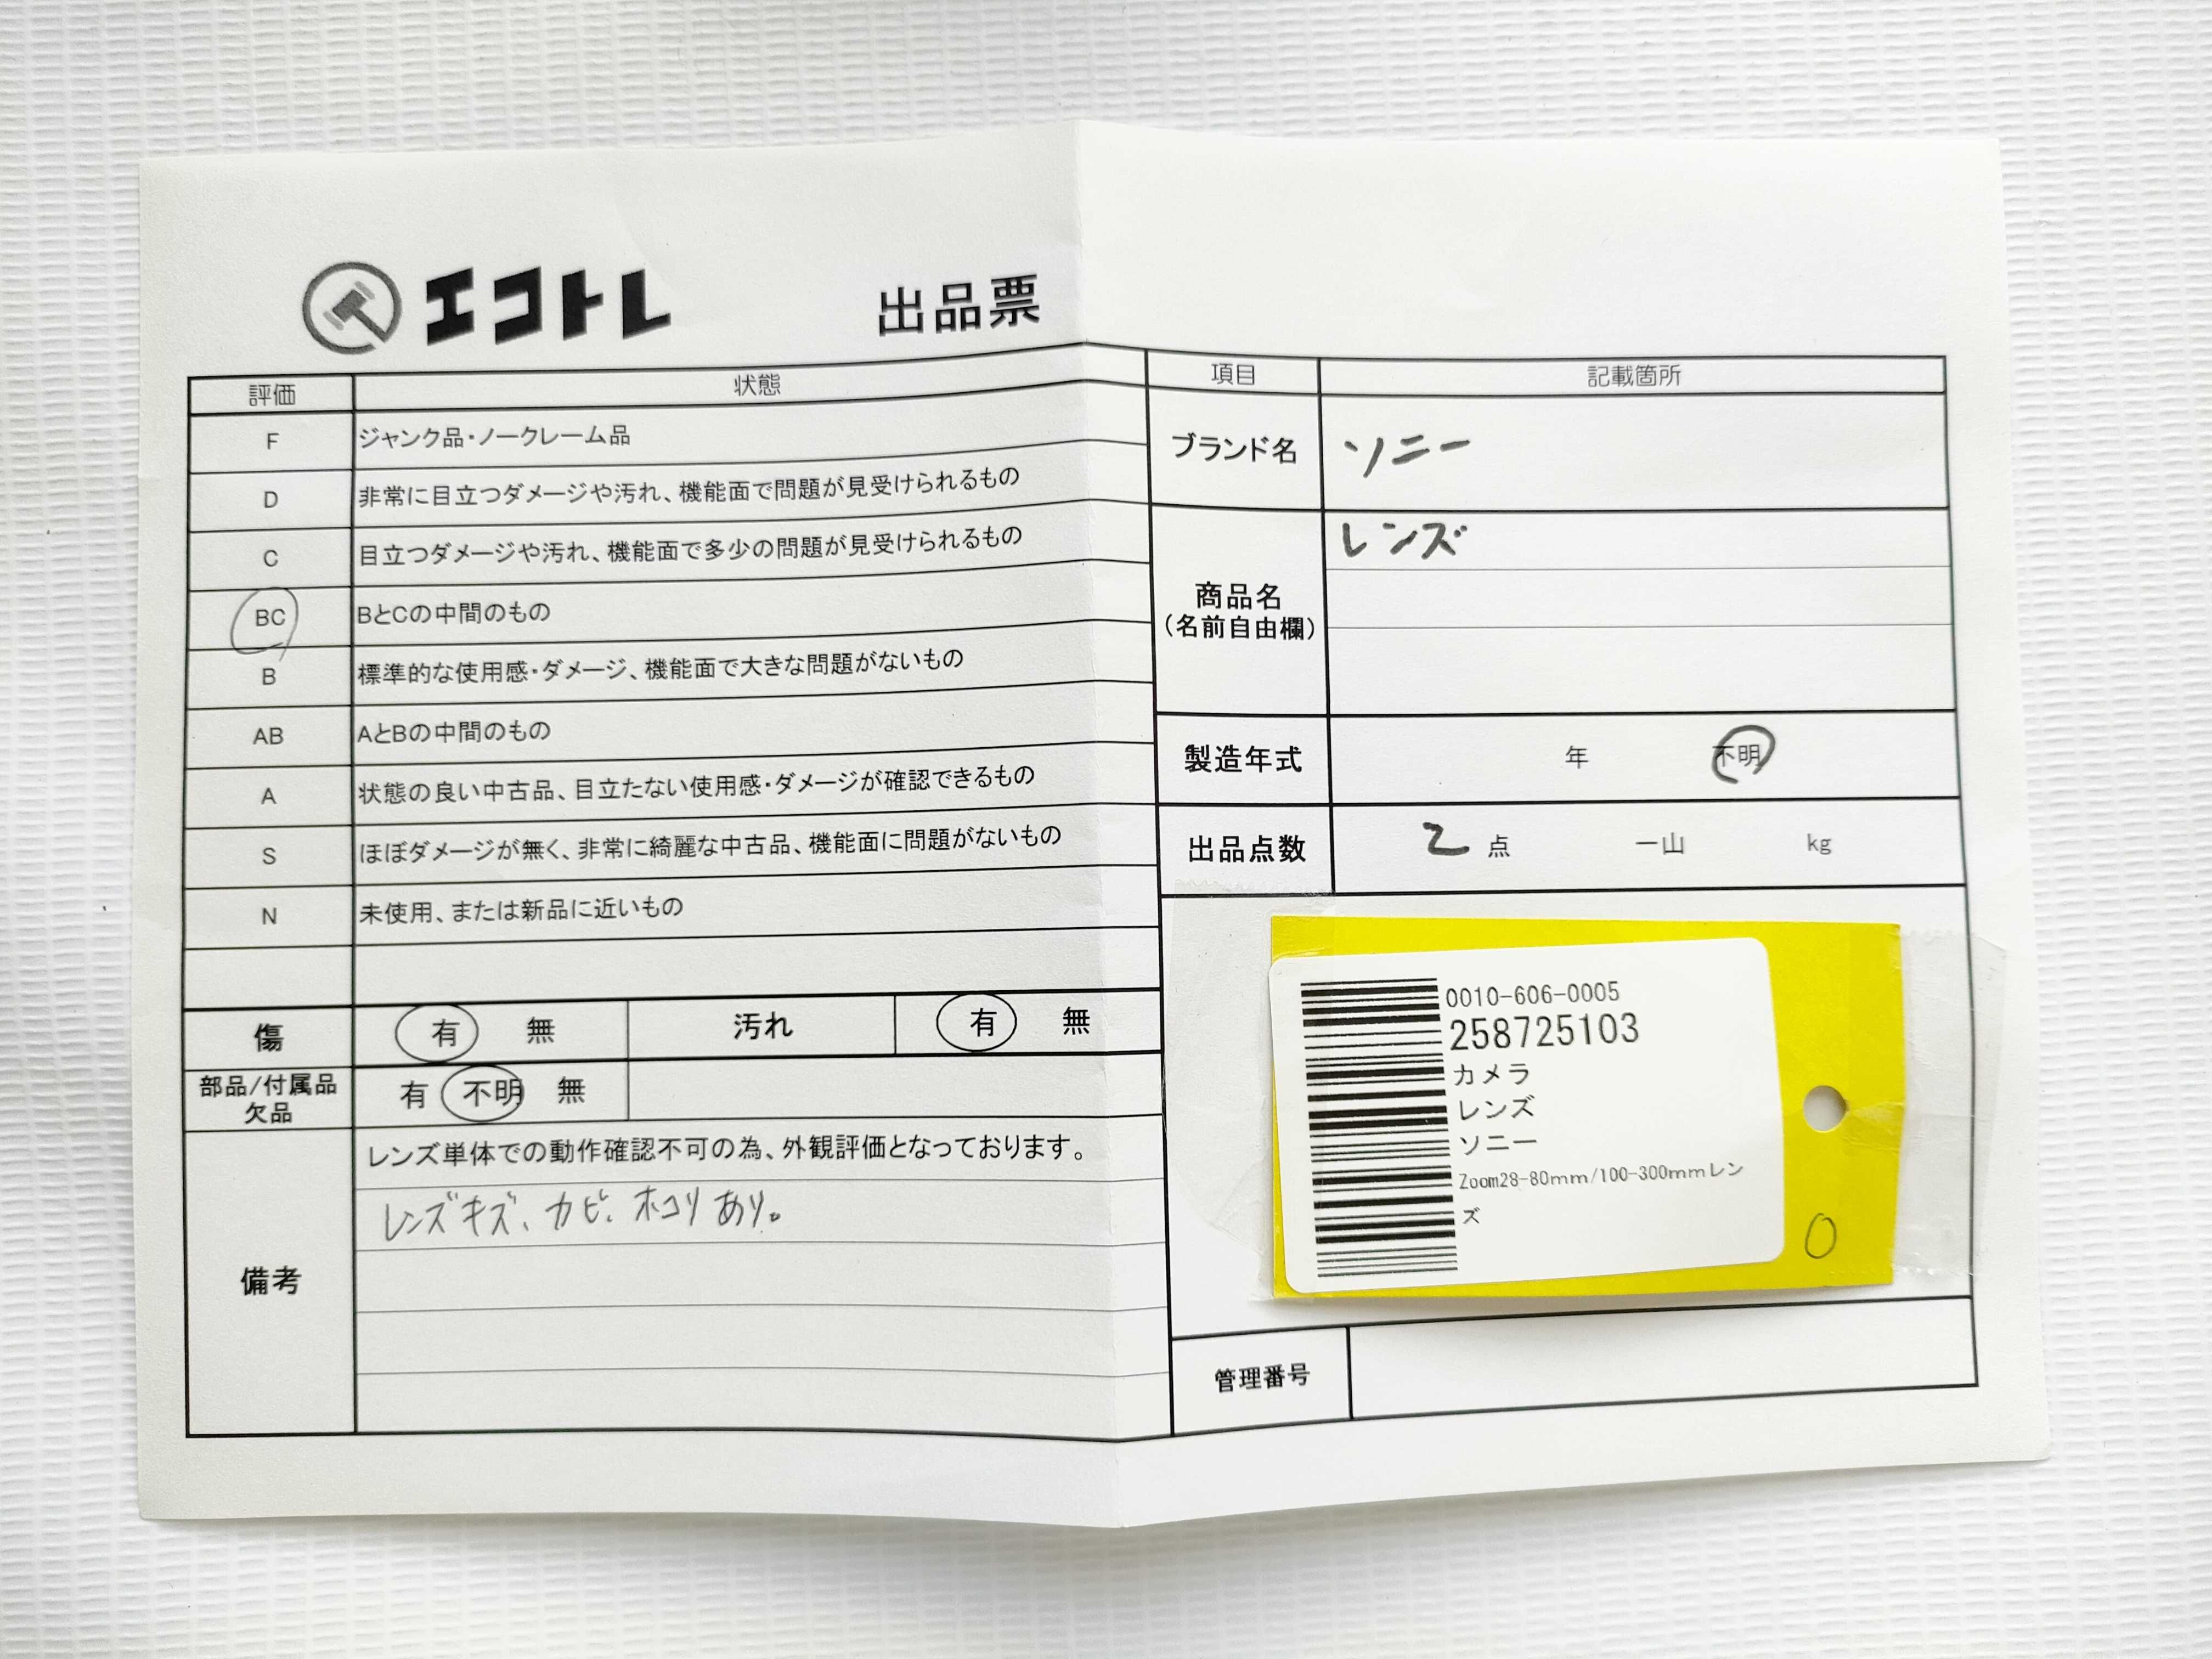 エコトレ 出品票
評価 状態
F ジャンク品・ノークレーム品
D 非常に目立つダメージや汚れ、機能面で問題が見受けられるもの
C 目立つダメージや汚れ、機能面で多少の問題が見受けられるもの
BC BとCの中間のもの
B 標準的な使用感・ダメージ、機能面で大きな問題がないもの
AB AとBの中間のもの
A 状態の良い中古品、目立たない使用感・ダメージが確認できるもの
S ほぼダメージが無く、非常に綺麗な中古品、機能面に問題がないもの
N 未使用、または新品に近いもの
傷 有 無 汚れ 有 無
部品/付属品
欠品
有 不明 無
備考
レンズ単体での動作確認不可の為、外観評価となっております。
レンズキズ、カビ、ホコリあり。
項目 記載箇所
ブランド名 ソニー
商品名
(名前自由欄)
レンズ
製造年式 年 不明
出品点数 2 点 一山 kg
0010-606-0005
258725103
カメラ
レンズ
ソニー
Zoom28-80mm/100-300mmレン
ズ
0
管理番号